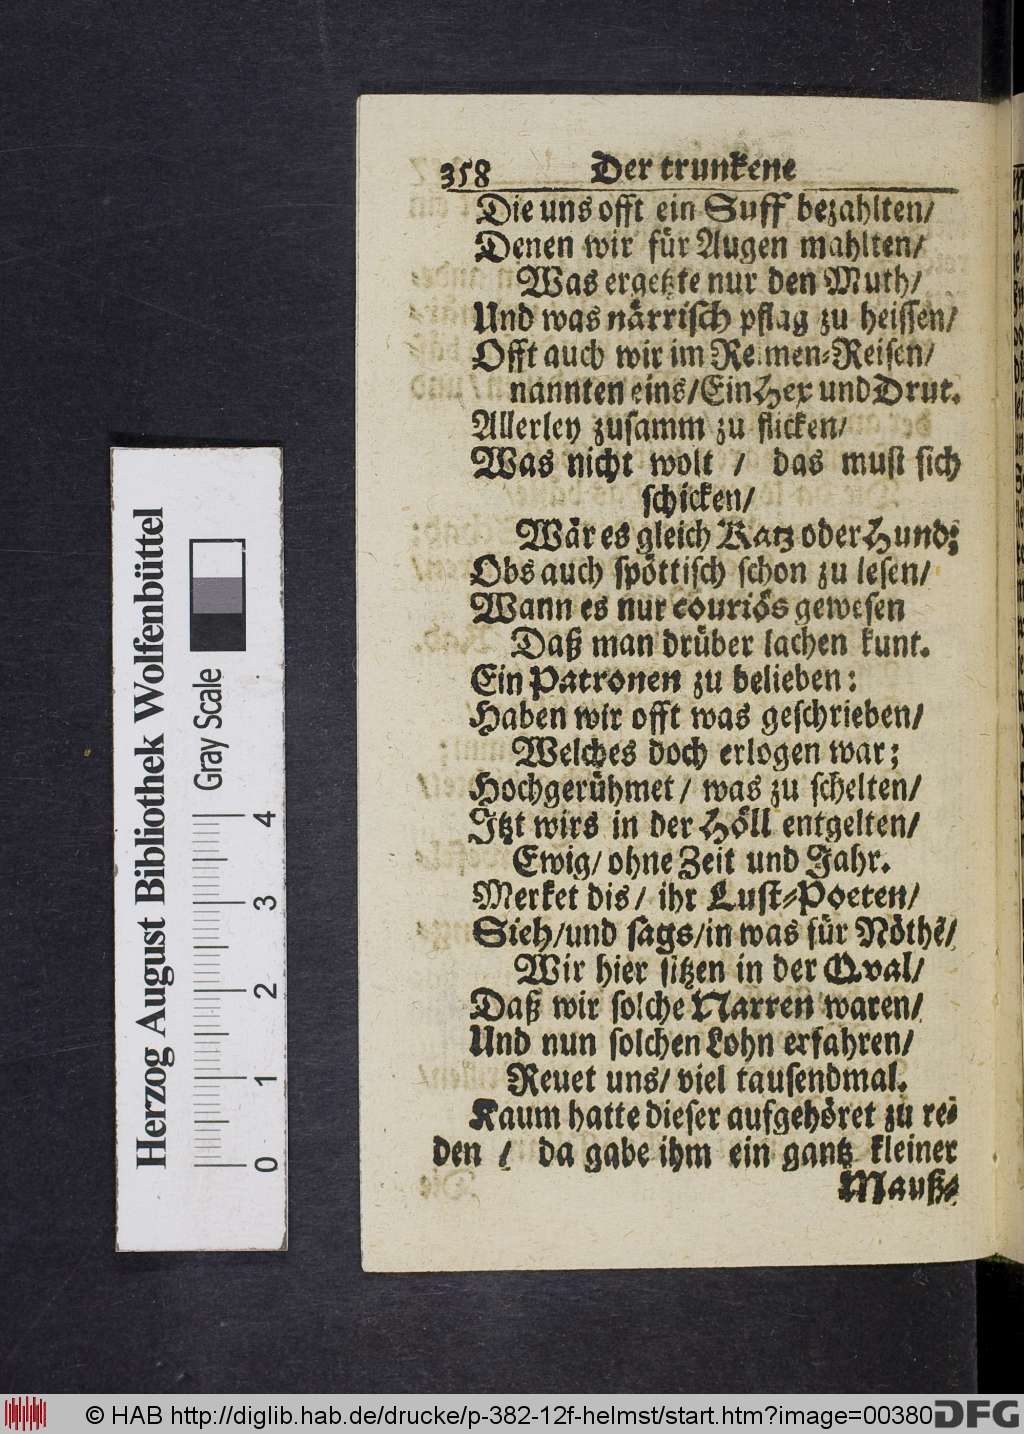 358 Der trunkene
Die uns offt ein Suff bezahlten/
Denen wir für Augen mahlten/
Was ergetzte nur den Muth/
Und was närrisch pflag zu heissen/
Offt auch wir im Reimen-Reisen/
nannten eins/Ein Hex und Drut.
Allerley zusamm zu flicken/
Was nicht wolt / das must sich
schicken/
Wär es gleich Katz oder Hund;
Obs auch spöttisch schon zu lesen/
Wann es nur couriös gewesen
Daß man drüber lachen kunt.
Ein Patronen zu belieben:
Haben wir offt was geschrieben/
Welches doch erlogen war;
Hochgerühmet / was zu schelten/
Jtzt wirs in der Höll entgelten/
Ewig/ ohne Zeit und Jahr.
Merket dis / ihr Lust-Poeten/
Sieh/und sags/in was für Nöthē/
Wir hier sitzen in der Qval/
Daß wir solche Narren waren/
Und nun solchen Lohn erfahren/
Reuet uns/ viel tausendmal.
Kaum hatte dieser aufgehöret zu re-
den / da gabe ihm ein gantz kleiner
Mauß-
Herzog August Bibliothek Wolfenbüttel
Gray Scale
0 1 2 3 4
© HAB http://diglib.hab.de/drucke/p-382-12f-helmst/start.htm?image=00380
DFG